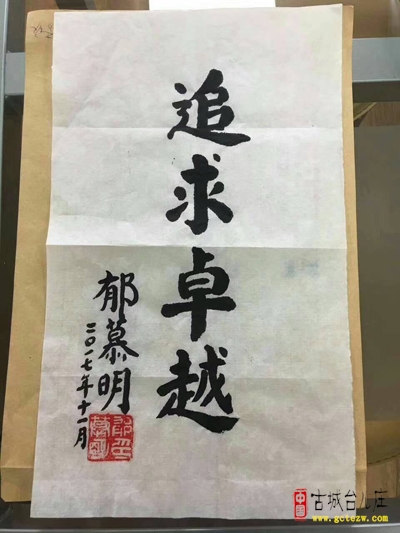 追求卓越
郁慕明
二〇一七年十一月
郁慕明印
中国
古城台儿庄
www.gctezw.com